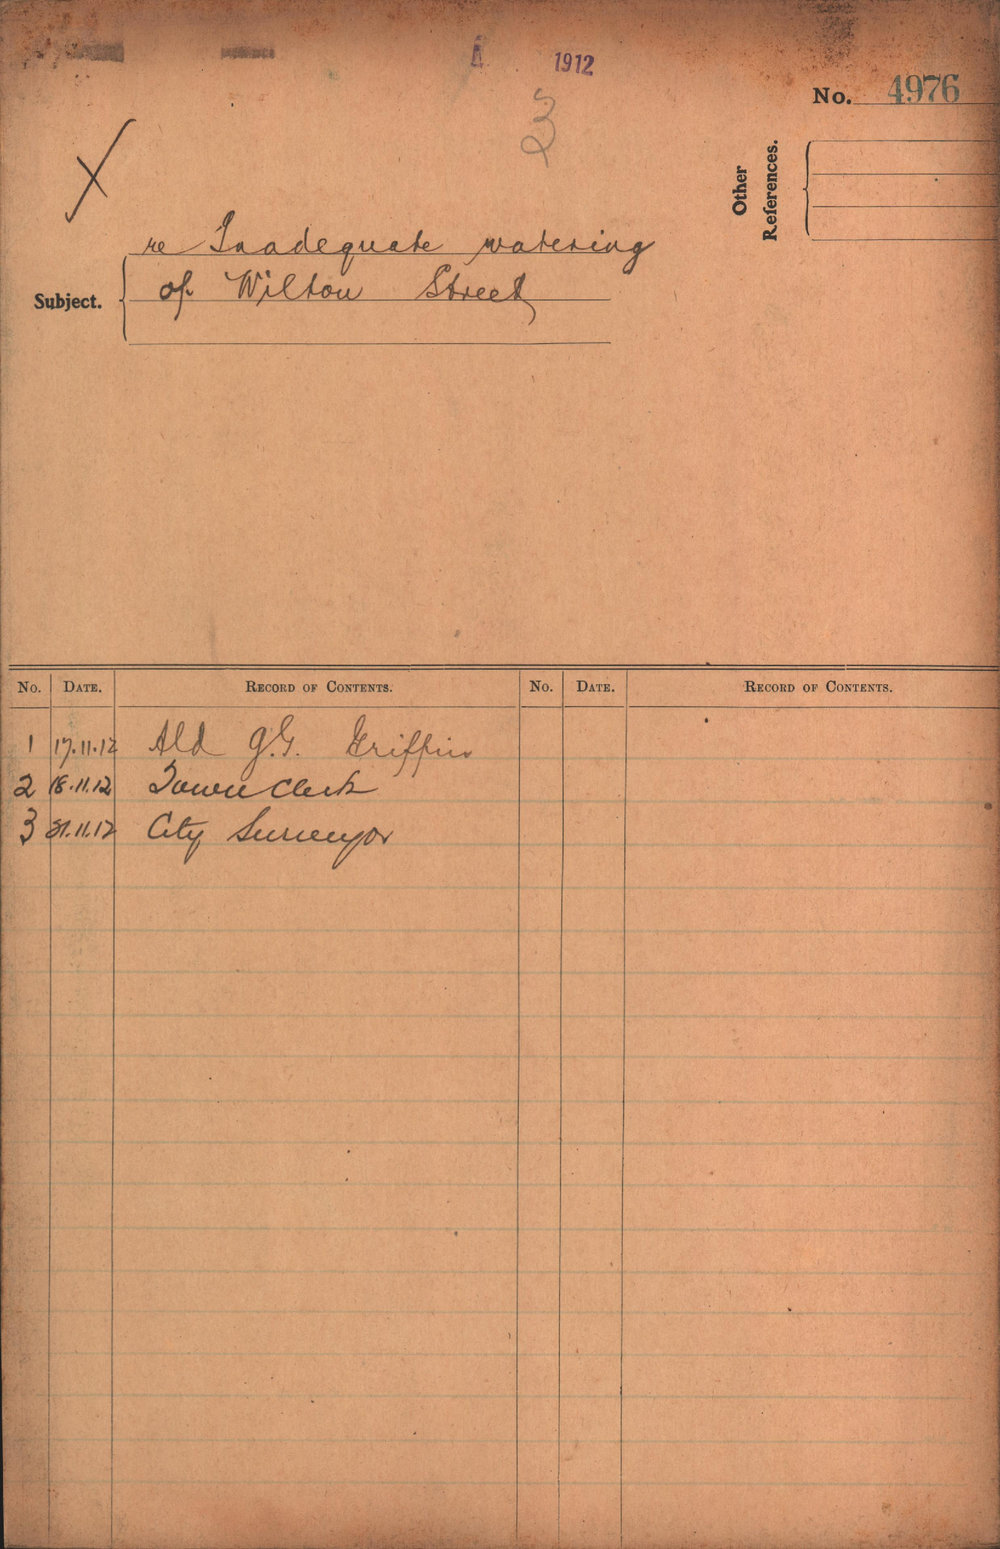 1912
No. 4976
Other
References.
re Inadequate watering
Subject. of Wilton Street
No. DATE. RECORD OF CONTENTS. No. DATE. RECORD OF CONTENTS.
1 17.11.12 Ald G.G. Griffin
2 18.11.12 Town Clerk
3 21.11.12 City Surveyor